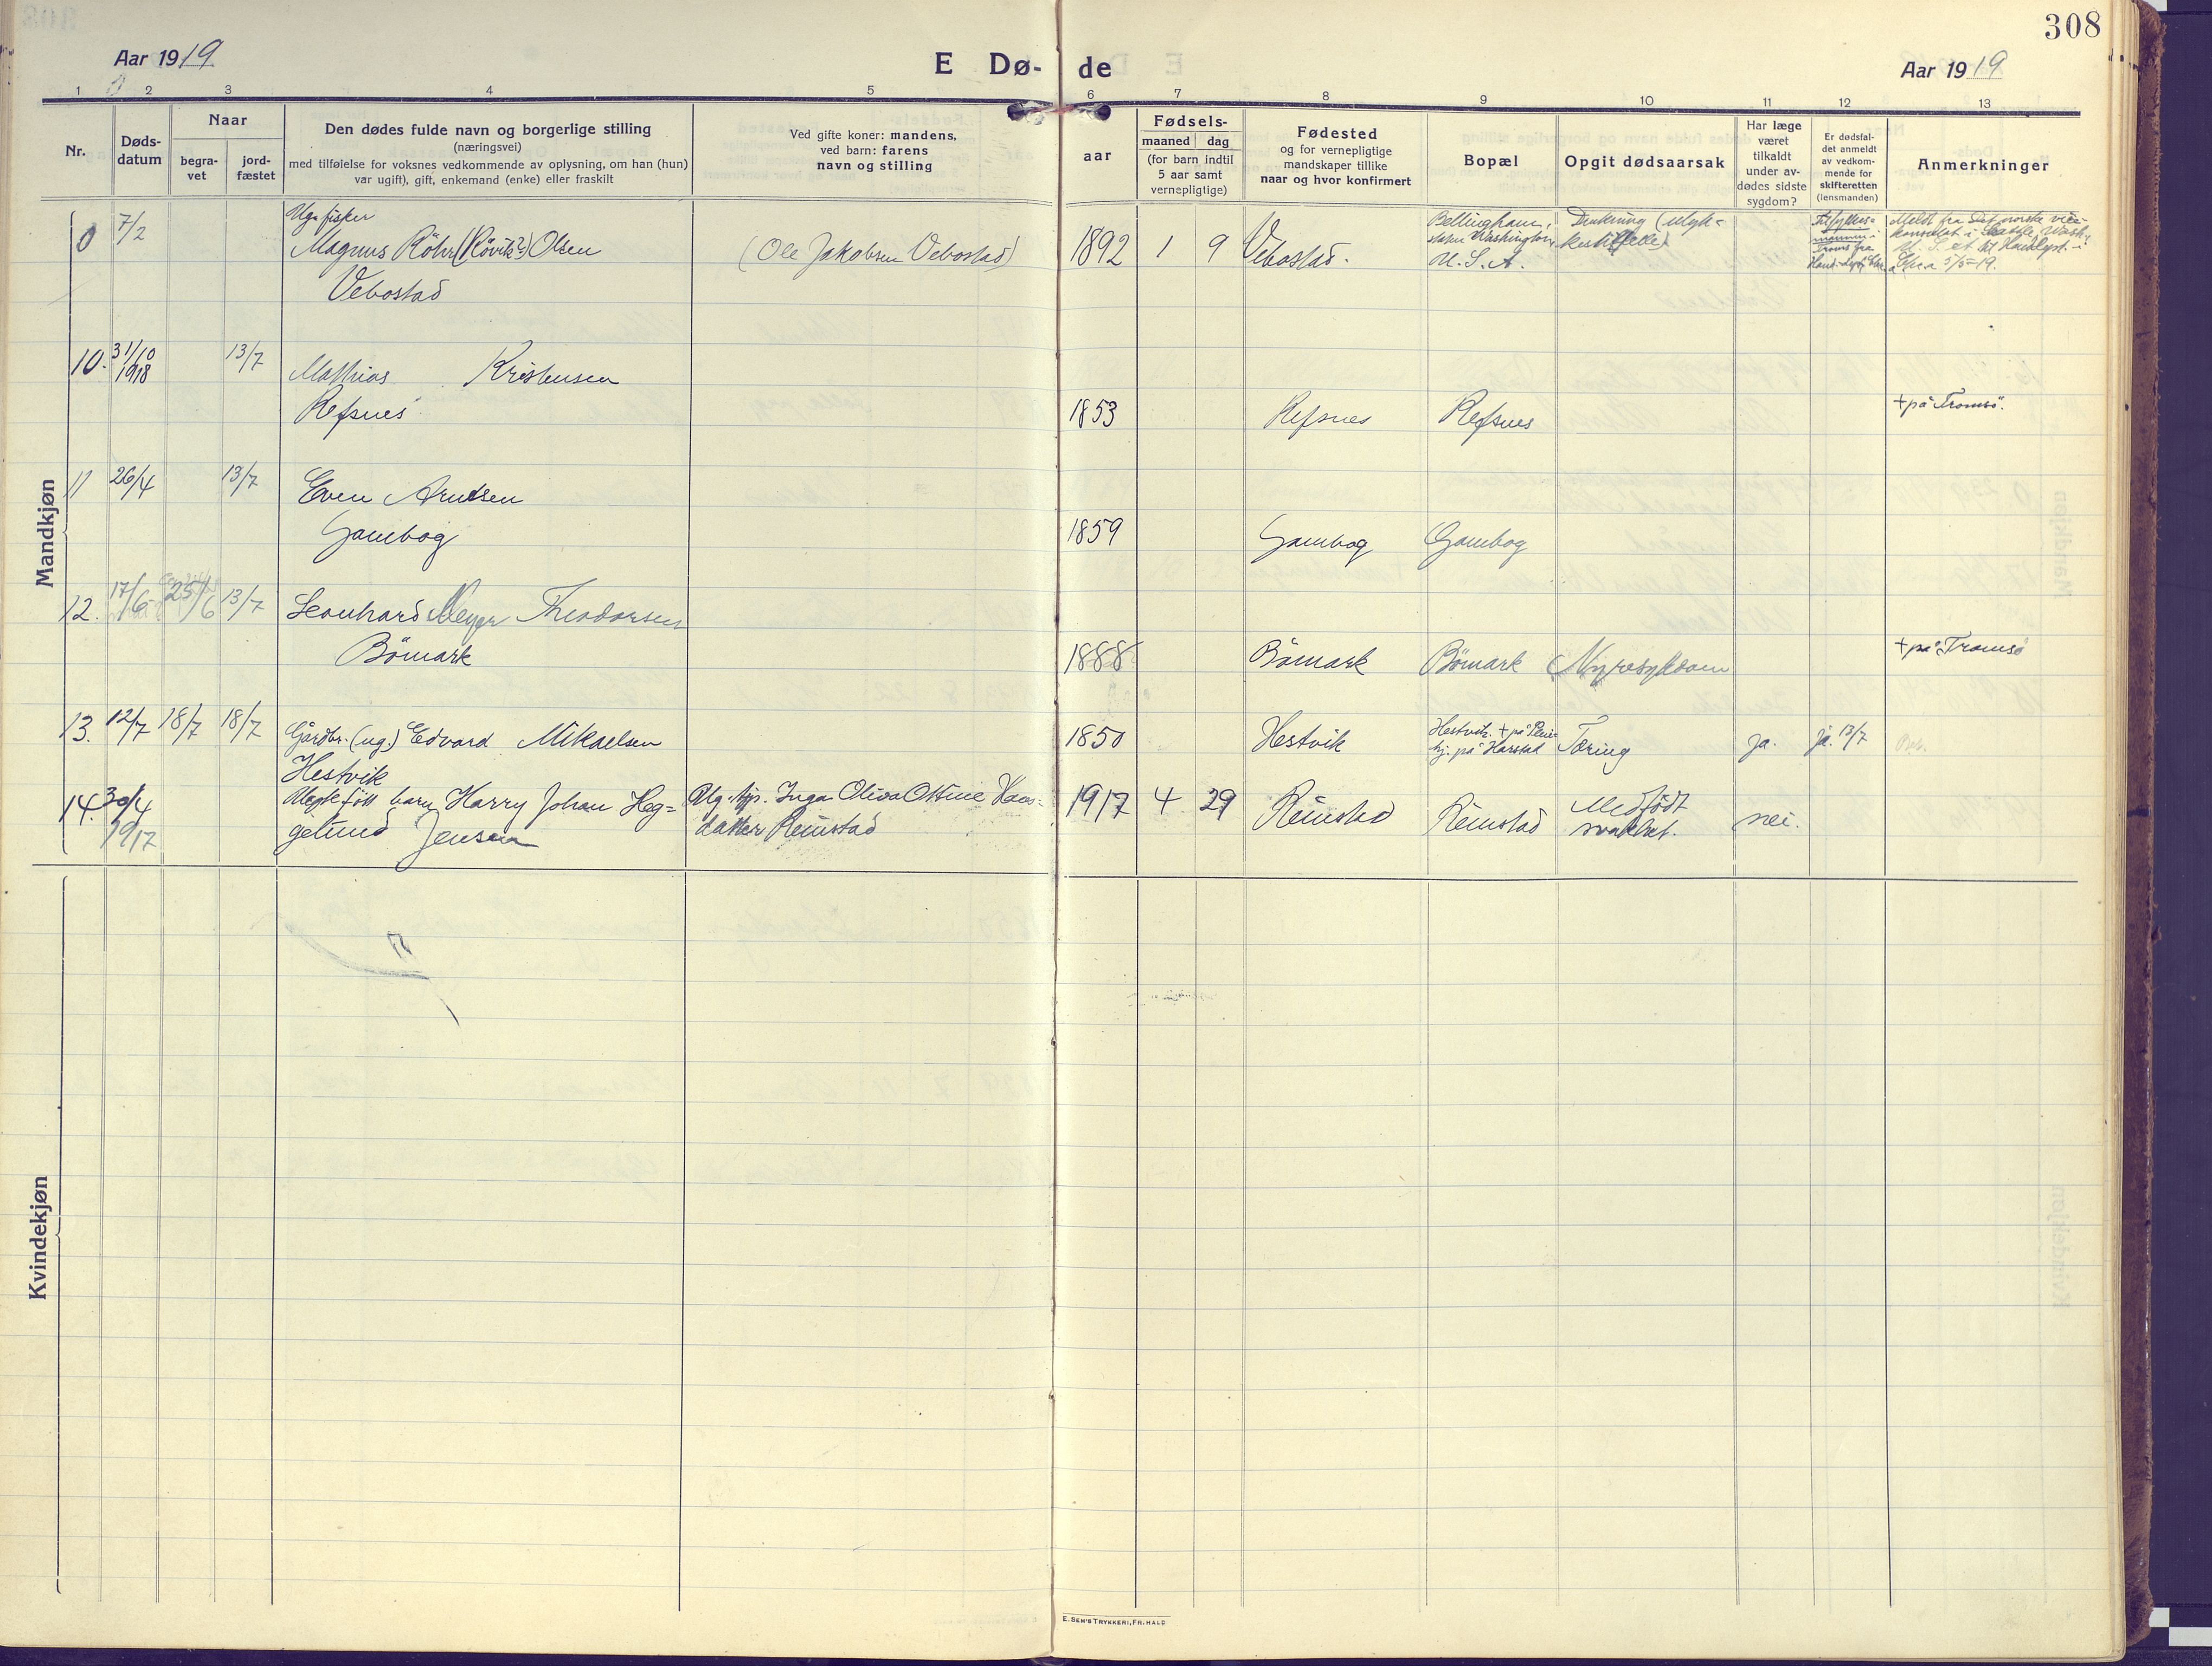 308
Aar 1919
E Dø- de
Aar 1919
1 2 3 4 5 6 7 8 9 10 11 12 13
Nr.
Døds-
datum
Naar
begra-
vet
jord-
fæstet
Den dødes fulde navn og borgerlige stilling
(næringsvei)
med tilføielse for voksnes vedkommende av oplysning, om han (hun)
var ugift), gift, enkemand (enke) eller fraskilt
Ved gifte koner: mandens,
ved barn: farens
navn og stilling
Fødsels-
aar
maaned dag
(for barn indtil
5 aar samt
vernepligtige)
Fødested
og for vernepligtige
mandskaper tillike
naar og hvor konfirmert
Bopæl
Opgit dødsaarsak
Har læge
været
tilkaldt
under av-
dødes sidste
sygdom?
Er dødsfal-
det anmeldt
av vedkom-
mende for
skifteretten
(lensmanden)
Anmerkninger
Mandkjøn
0 7/2
Ug. fisker
Magnus Röhr (Rövik?) Olsen
Vebostad
(Ole Jakobsen Vebostad)
1892 1 9 Vebostad.
Bellingham,
staten Washington
U. S. A.
Drukning (ulyk-
kestilfelle)
Meldt fra Det norske vice-
konsulat i Seattle Wash.
10. 31/10
1918
13/7
Mathias Kristensen
Refsnes
1853 Refsnes Refsnes
+ på Tromsö.
11 26/4 13/7
Even Arntsen
Gambog
1859 Gambog Gambog
12. 17/6 25/6 13/7
Leonhard Meyer Theodorsen
Bömark
1888 Bömark Bömark Nyresykdom
+ på Tromsö
13. 12/7 18/7 18/7
Gårdbr. (ug.) Edvard Mikaelsen
Hestvik
1850 Hestvik
Hestvik. + på
på Harstad
Tæring ja. ja. 13/7
14. 30/4
1917
Uegtefött barn Harry Johan Heg-
gelund Jensen
Ug. tjp. Inga Oliva Ottine Hans-
datter Reinstad
1917 4 29 Reinstad Reinstad
Medfödt
svakhet.
nei.
Kvindekjøn
E. SEM'S TRYKKERI, FR. HALD